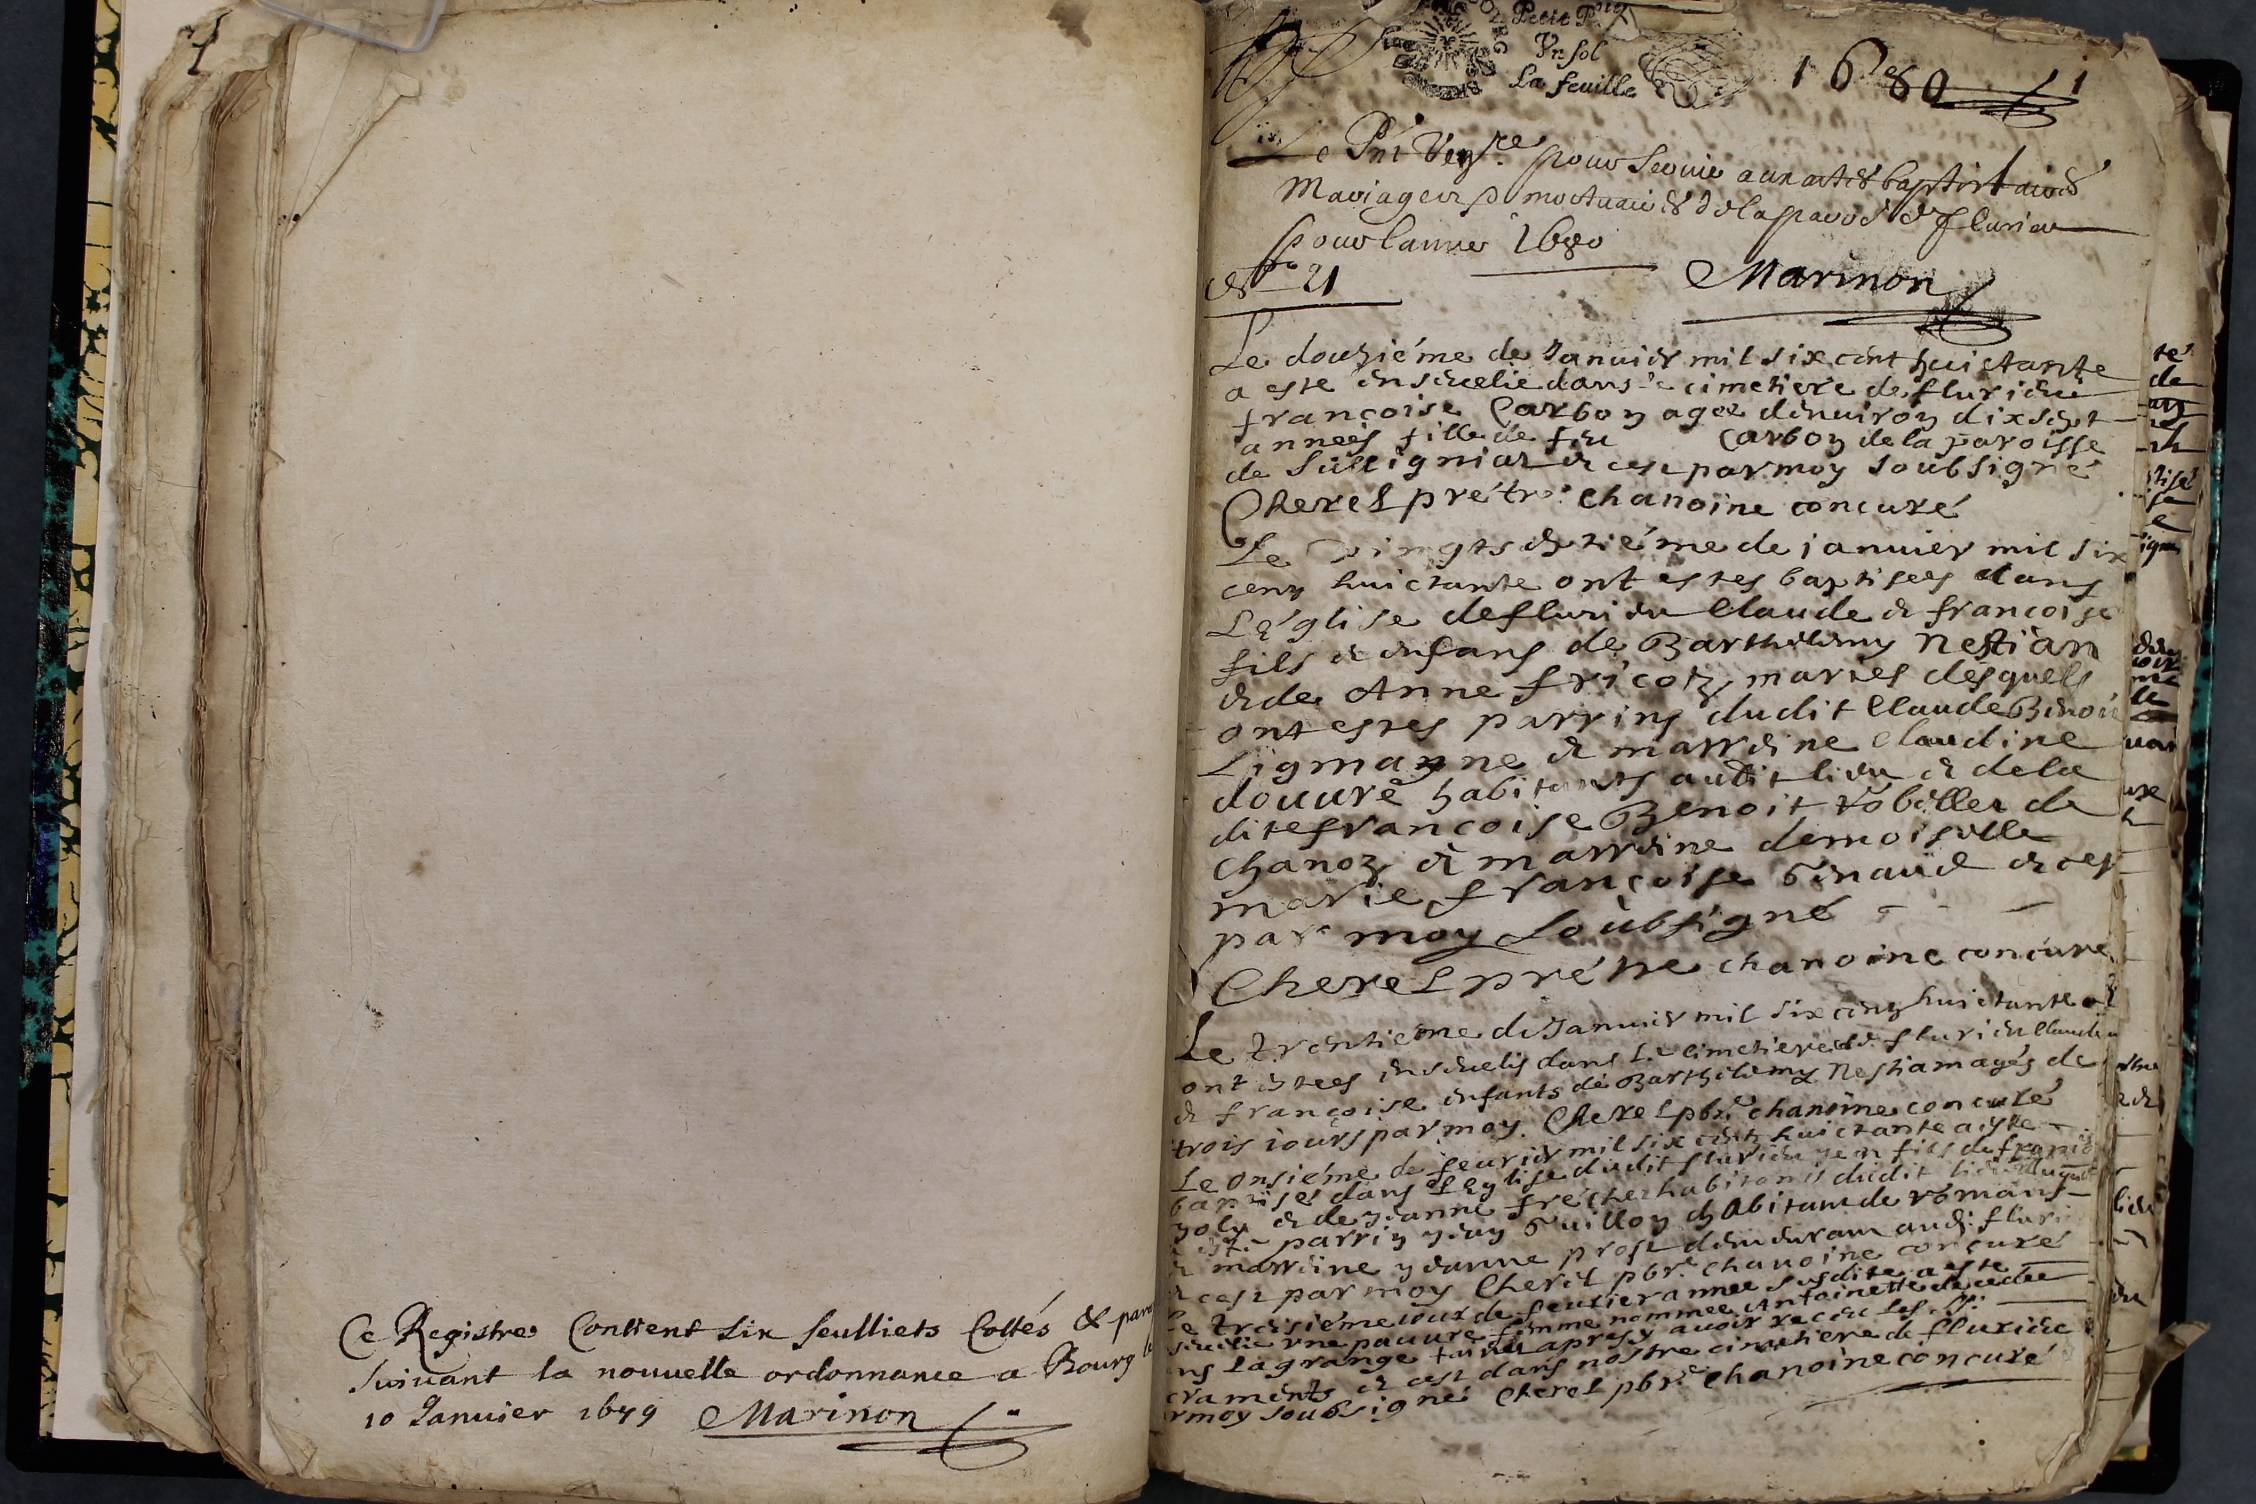 Ce Registre Contient six feulliets Cottés & para
suivant la nouvelle ordonnance a Bourg le
10 Januier 1679 Marinon
Petit P
Vn sol
La feuille
1680
1
pour seruir aux actes baptistaires
Mariages & mortuaires de la parod de flurieu
pour lannee 1680
21
Marinon
Le douziéme de Januier mil six cent huictante
a este enseuelie dans le cimetiere de flurieu
françoise Carbon agee denuiron dix sept
anneés fille de feu Carbon de la paroisse
de Sulignia & cest par moy soubsigné
Cherel prétre chanoine concuré
Le vingtseptiéme de januier mil six
cens huictante ont estes baptisees dans
Léglise de flurieu Claude & françoise
fils & enfans de Barthelemy Nestian
& de Anne fricot mariés desquels
ont estes parrins dudit Claude Benoit
Ligmanne & marreine Claudine
douuré habitants audit lieu & de la
dite francoise Benoit robillet de
chanoz & marreine demoiselle
marie françoise Genaud & cest
par moy soubsigné
Cherel prétre chanoine concuré
Le trentiéme de Januier mil six cens huictante
ont estees enseuelis dans le cimetiere de flurieu Claude
& françoise enfants de Barthelemy Nestiam agés de
trois iours par moy. Cherel pbre chanoine concuré
Le onsiéme de feurier mil six cents huictante a este
baptisés dans Leglise dudit flurieu jean fils de françois
joly & de jeanne frechet habitants dudit lieu duquel
a esté parrin jean Guillon habitant de romans
& marreine jeanne prost demeurant audit fluri
& cest par moy Cherel pbre chanoine concuré
Le troisiéme iour de feurier annee susdite a este
enseuelie vne pauure femme nommee Antoinette decedee
dans la grange apres y auoir receu les Sts
sacraments & cest dans nostre cimetiere de flurieu
par moy soubsigné Cherel pbre chanoine concuré